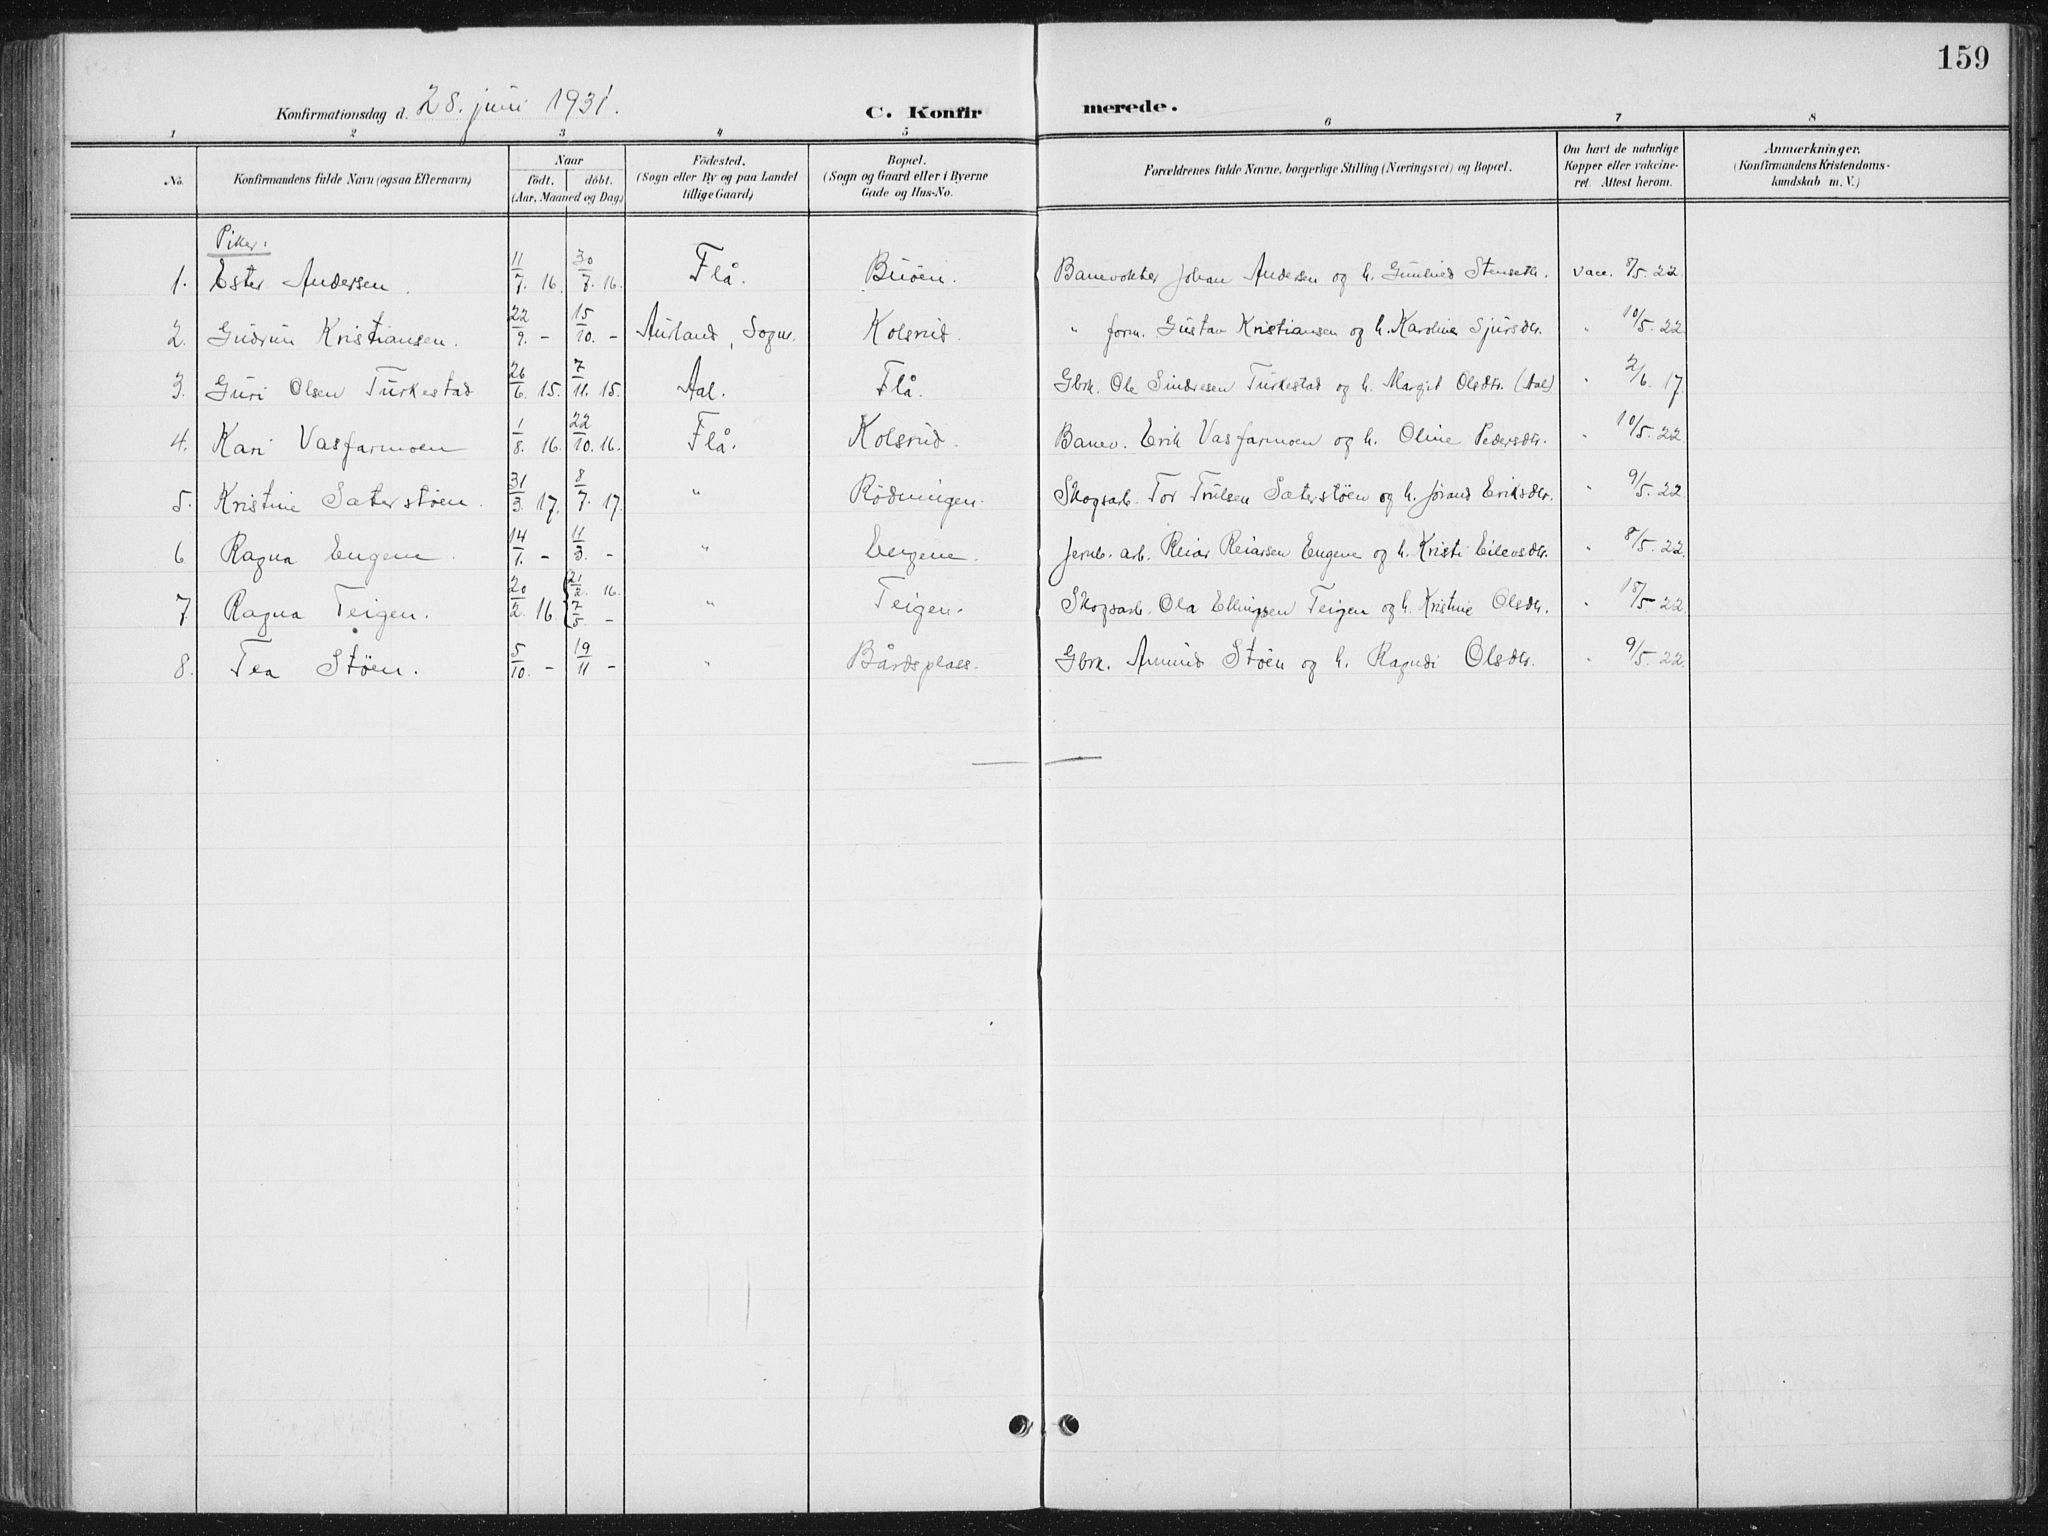 159
Konfirmationsdag d. 28. juni 1931. C. Konfirmerede.
1 2 3 4 5 6 7 8
No. Konfirmandens fulde Navn (ogsaa Efternavn) Naar födt. döbt. (Aar, Maaned og Dag.) Födested. (Sogn eller By og paa Landet tillige Gaard) Bopæl. (Sogn og Gaard eller i Byerne Gade og Hus-No. Forældrenes fulde Navne, borgerlige Stilling (Næringsvei) og Bopæl. Om havt de naturlige Kopper eller vakcineret. Attest herom. Anmærkninger, (Konfirmandens Kristendomskundskab m. V.)
Piker.
1. Ester Andersen. 11/7. 16. 30/7. 16. Flå. Buöen. Banevokter Johan Andersen og h. Gunhild Stenseth. vacc. 8/5. 22.
2. Gudrun Kristiansen. 22/9. - 15/10. - Aurland, Sogn. Kolsrud. " form. Gustav Kristiansen og h. Karoline Sjursdtr. " 10/5. 22
3. Guri Olsen Turkestad 26/6. 15. 7/11. 15. Aal. Flå. Gbrk. Ole Sindresen Turkestad og h. Margit Olsdtr. (Aal) " 2/6. 17.
4. Kari Vasfarmoen 1/8. 16. 22/10. 16. Flå. Kolsrud. Banev. Erik Vasfarmoen og h. Oline Pedersdtr. " 10/5. 22.
5. Kristine Sæterstöen. 31/3. 17. 8/7. 17. " Rödningen. Skogsarb. Tor Trulsen Sæterstöen og h. Jörand Eriksdtr. " 9/5. 22
6 Ragna Engene. 14/1. - 11/3. - " Engene. Jernb. arb. Reiar Reiarsen Engene og h. Kristi Eilevsdtr. " 8/5. 22.
7 Ragna Teigen. 20/2. 16 { 21/2. 16. 7/5. - " Teigen. Skogsarb. Ola Ellingsen Teigen og h. Kristine Olsdtr. " 18/5- 22.
8. Tea Stöen. 5/10. - 19/11 - " Bårdsplass. Gbrk. Amund Stöen og h. Ragndi Olsdtr. " 9/5. 22.